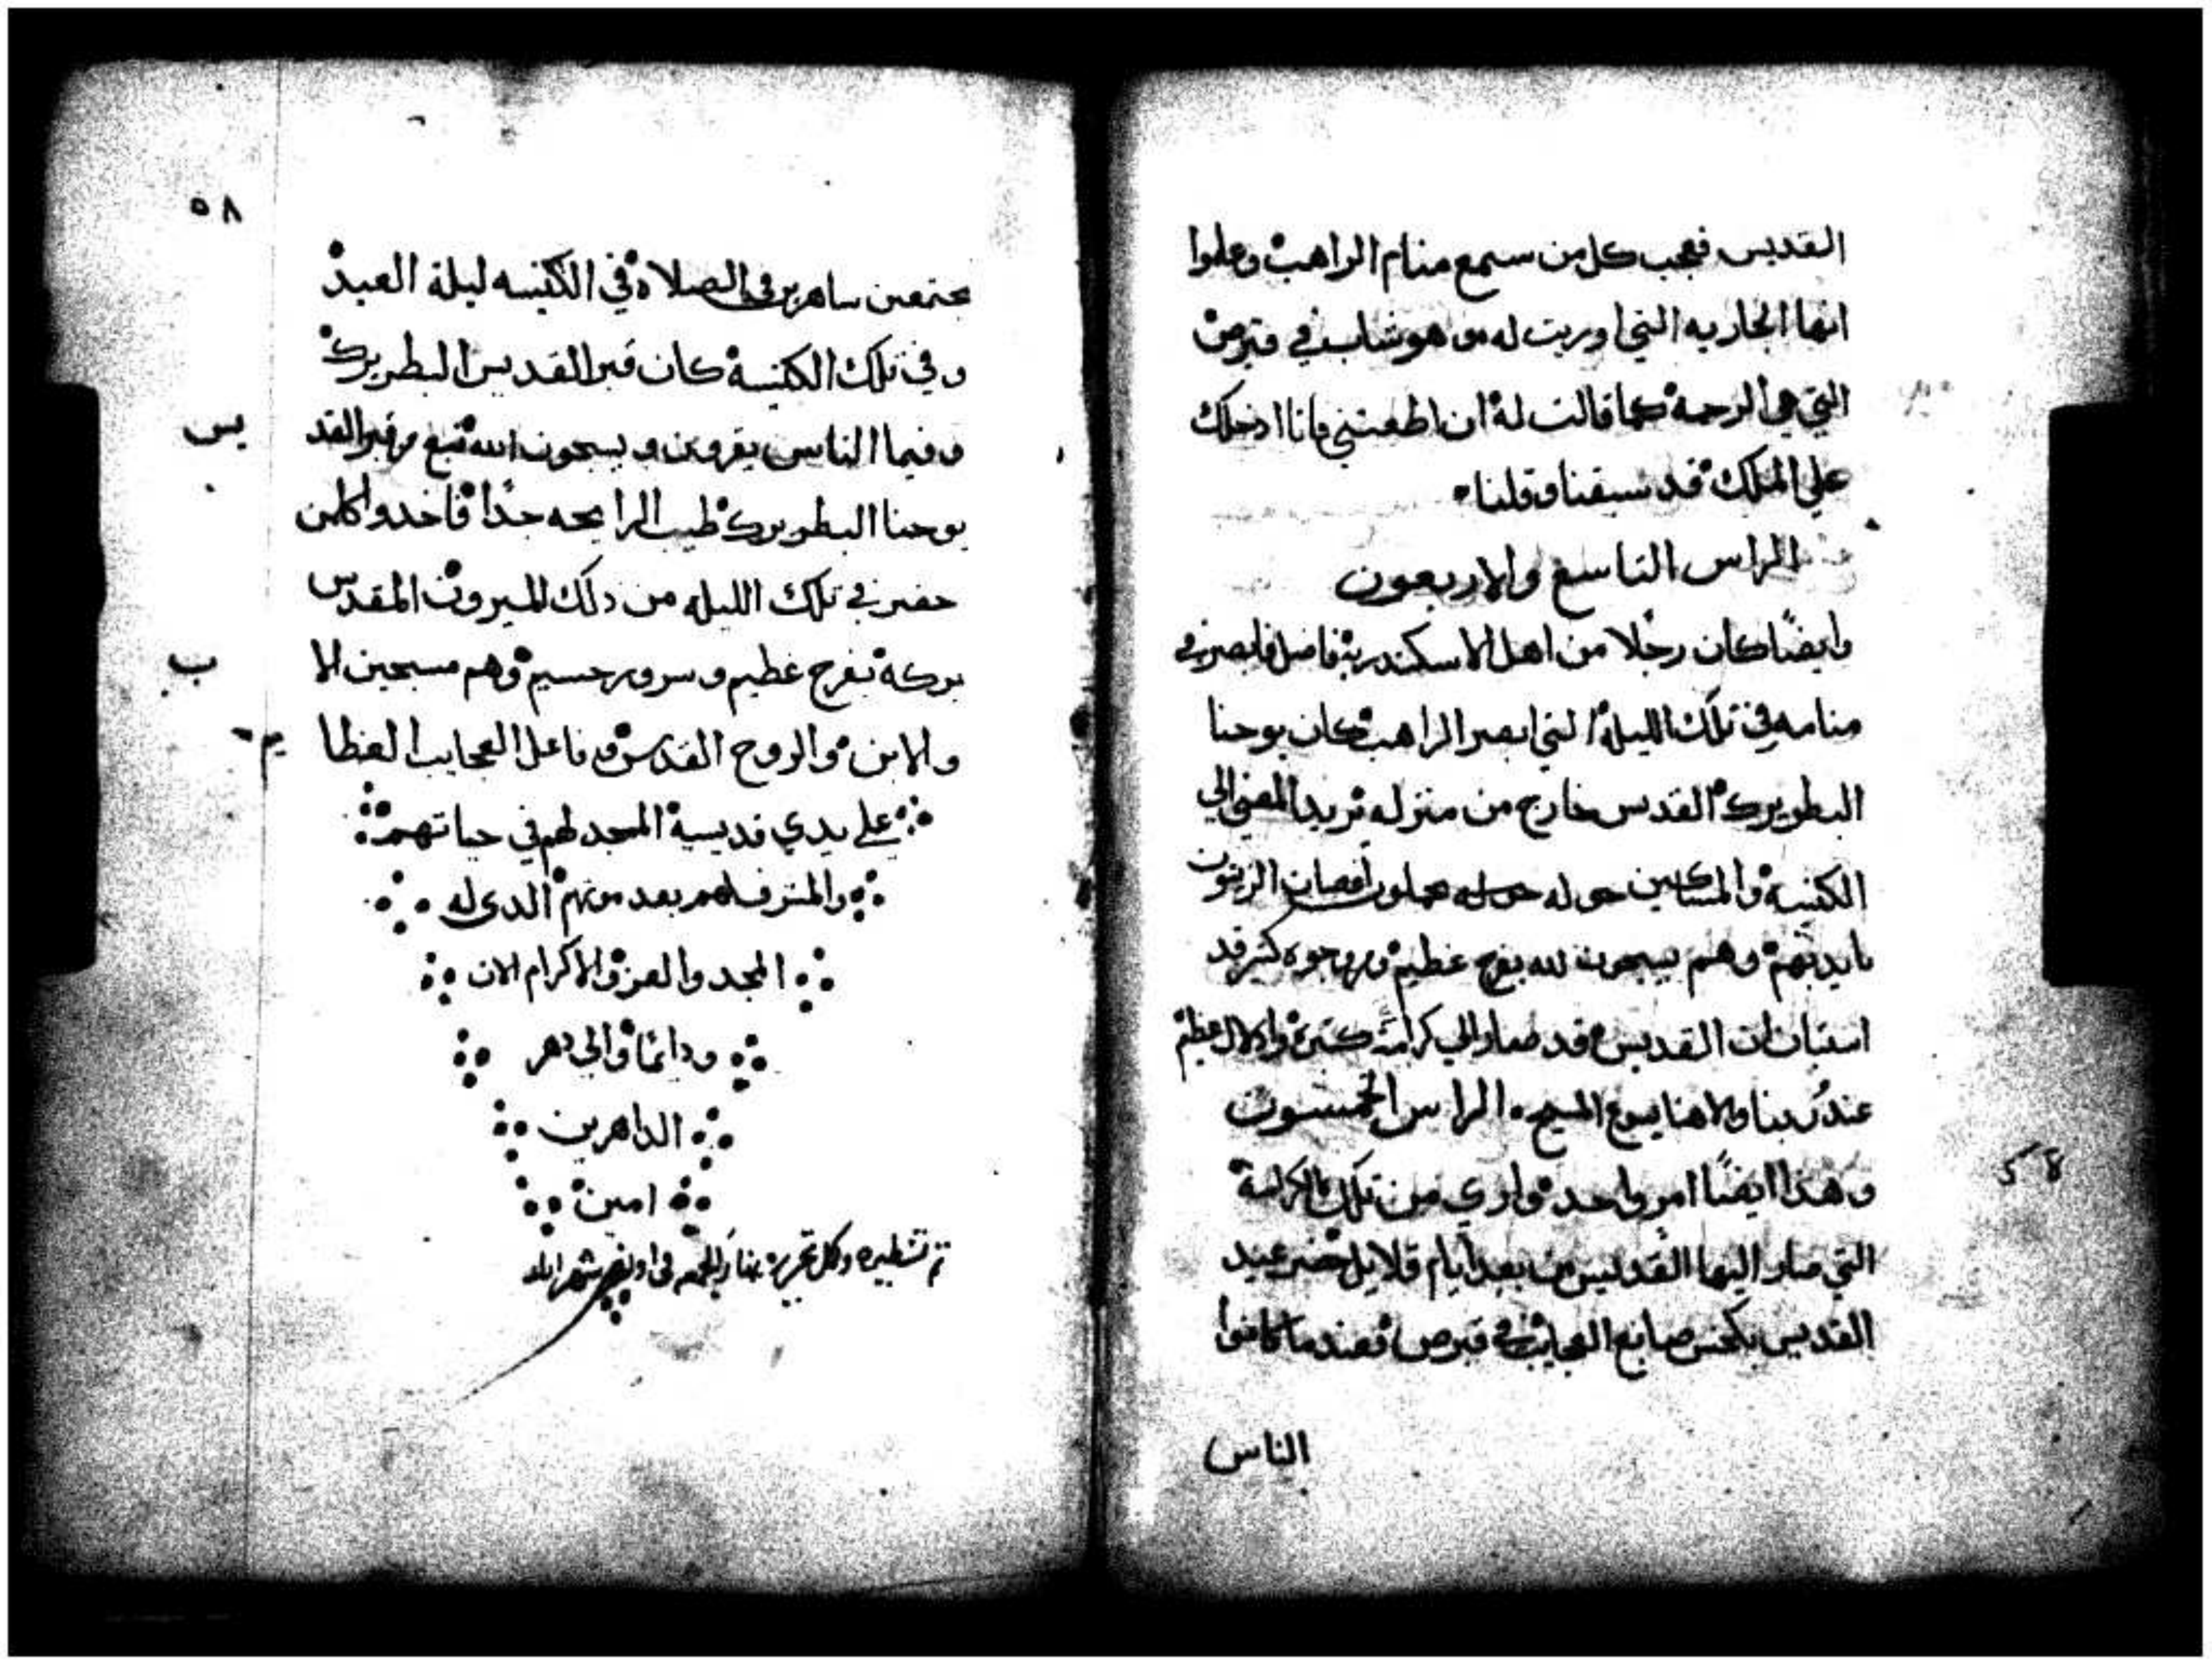 القديس فعجب كل من سمع منام الراهب وعلموا
انها الجاريه التي اوريت له وهو شاب في قبرص
التي هي الرحمة كما قالت له ان اطعتني فانا ادخلك
علي الملك قد سبقنا وقلنا
الراس التاسع والاربعون
وايضًا كان رجلا من اهل الاسكندرية فاضل فابصر في
منامه في تلك الليلة التي ابصر الراهب كان يوحنا
البطويرك القدس خارج من منزله يريد المضي الي
الكنيسة والمساكين حوله حوله حملون اغصان الزيتون
بايديهم وهم يسبحون لله بفرح عظيم ووجوه كثير قد
استبان ان القديس قد صار الي كرامة كثيرة وادلال عظيم
عند ربنا والاهنا يسوع المسيح الراس الخمسون
وهذا ايضًا امر واحد واري من تلك الكرامة
التي صار اليها القديس من بعد ايام قلايل حضر عيد
القديس صانع العجايب في قبرص فعندما كانوا
الناس
58
٥٨
مجتمعين ساهرين في الصلاة في الكنيسه ليلة العيد
وفي تلك الكنيسة كان قبر القديس البطريرك
وفيما الناس يقرون ويسبحون الله نبع من قبر القد
يس
يوحنا البطويرك طيب الرايحه جدًا فاخدوا كلمن
حضر في تلك الليله من دلك الميرون المقدس
بركة بفرح عظيم وسرور جسيم وهم مسبحين الا
ب
والابن والروح القدس فاعل العجايب العظا
يم
علي يدي قديسية الممجد لهم في حياتهم
والمشرف لهم بعد موتهم الدي له
المجد والعز والاكرام الان
ودائمًا والي دهر
الداهرين
امين
تم تسطيره وكل تحريره نهار الجمعه في شهر